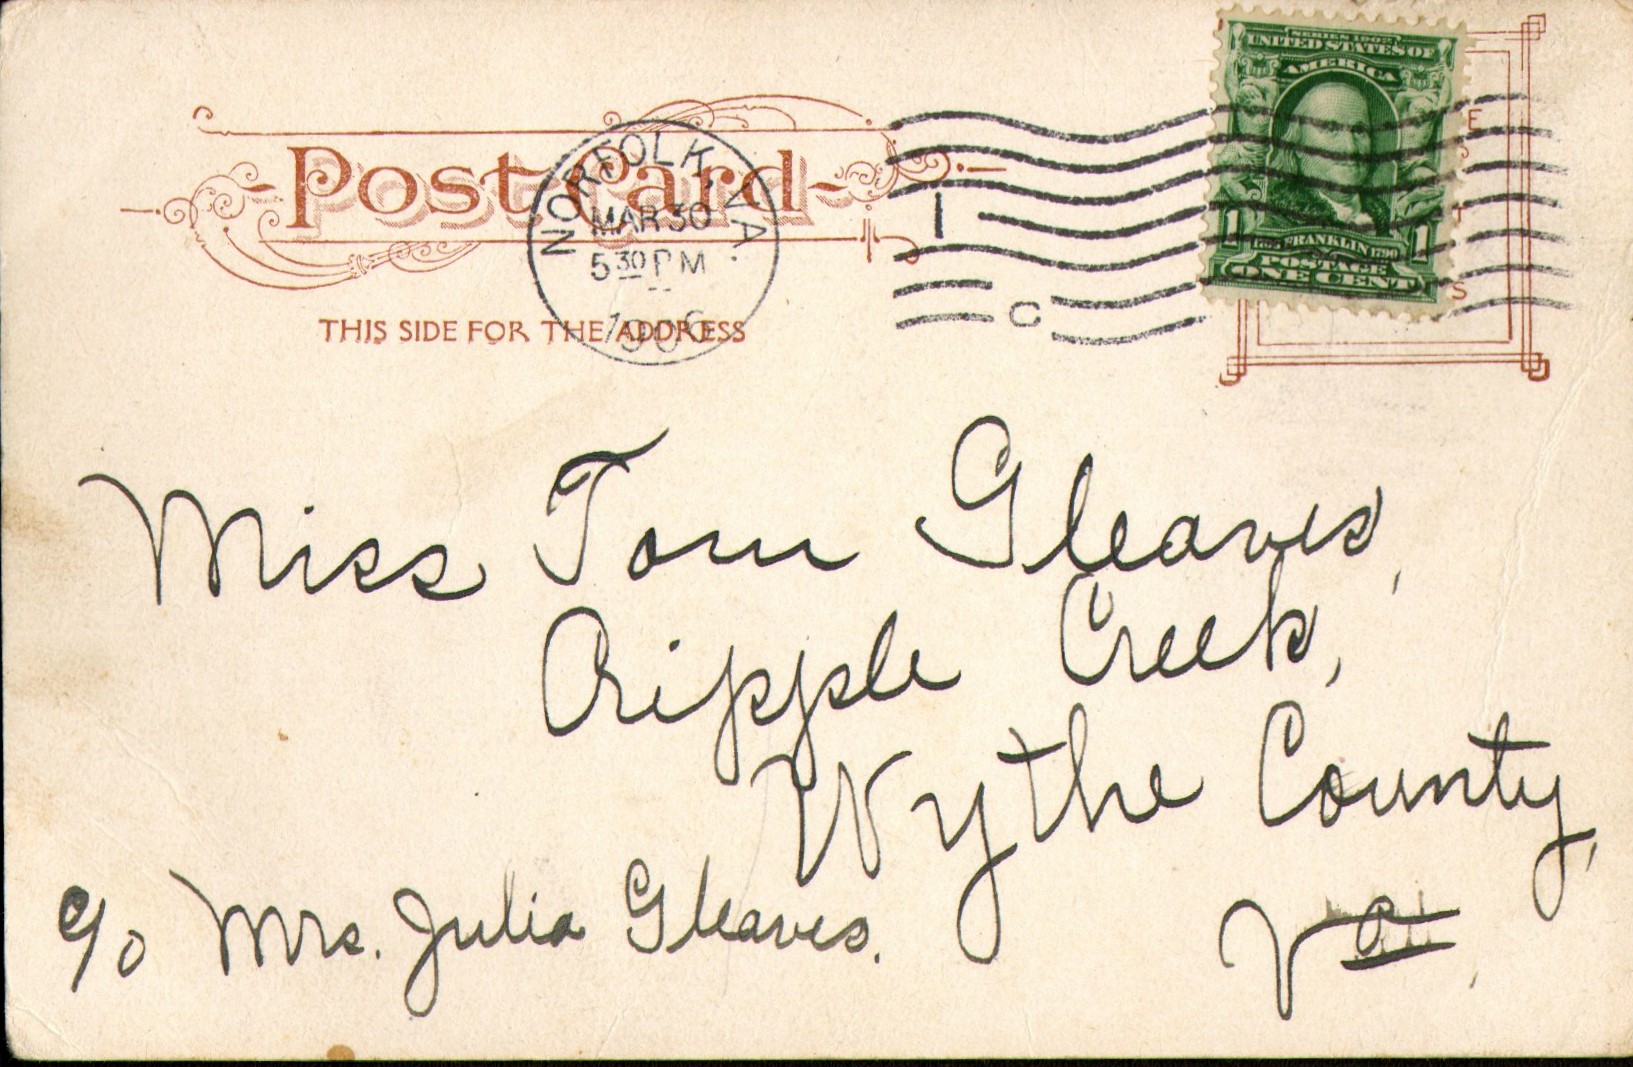 Post Card
NORFOLK, VA.
MAR 30
5 30 PM
1906
1
C
THIS SIDE FOR THE ADDRESS
SERIES 1902
UNITED STATES OF
AMERICA
1 FRANKLIN 1790 1
POSTAGE
ONE CENT
Miss Tom Gleaves,
Cripple Creek,
Wythe County,
c/o Mrs. Julia Gleaves.
Va.